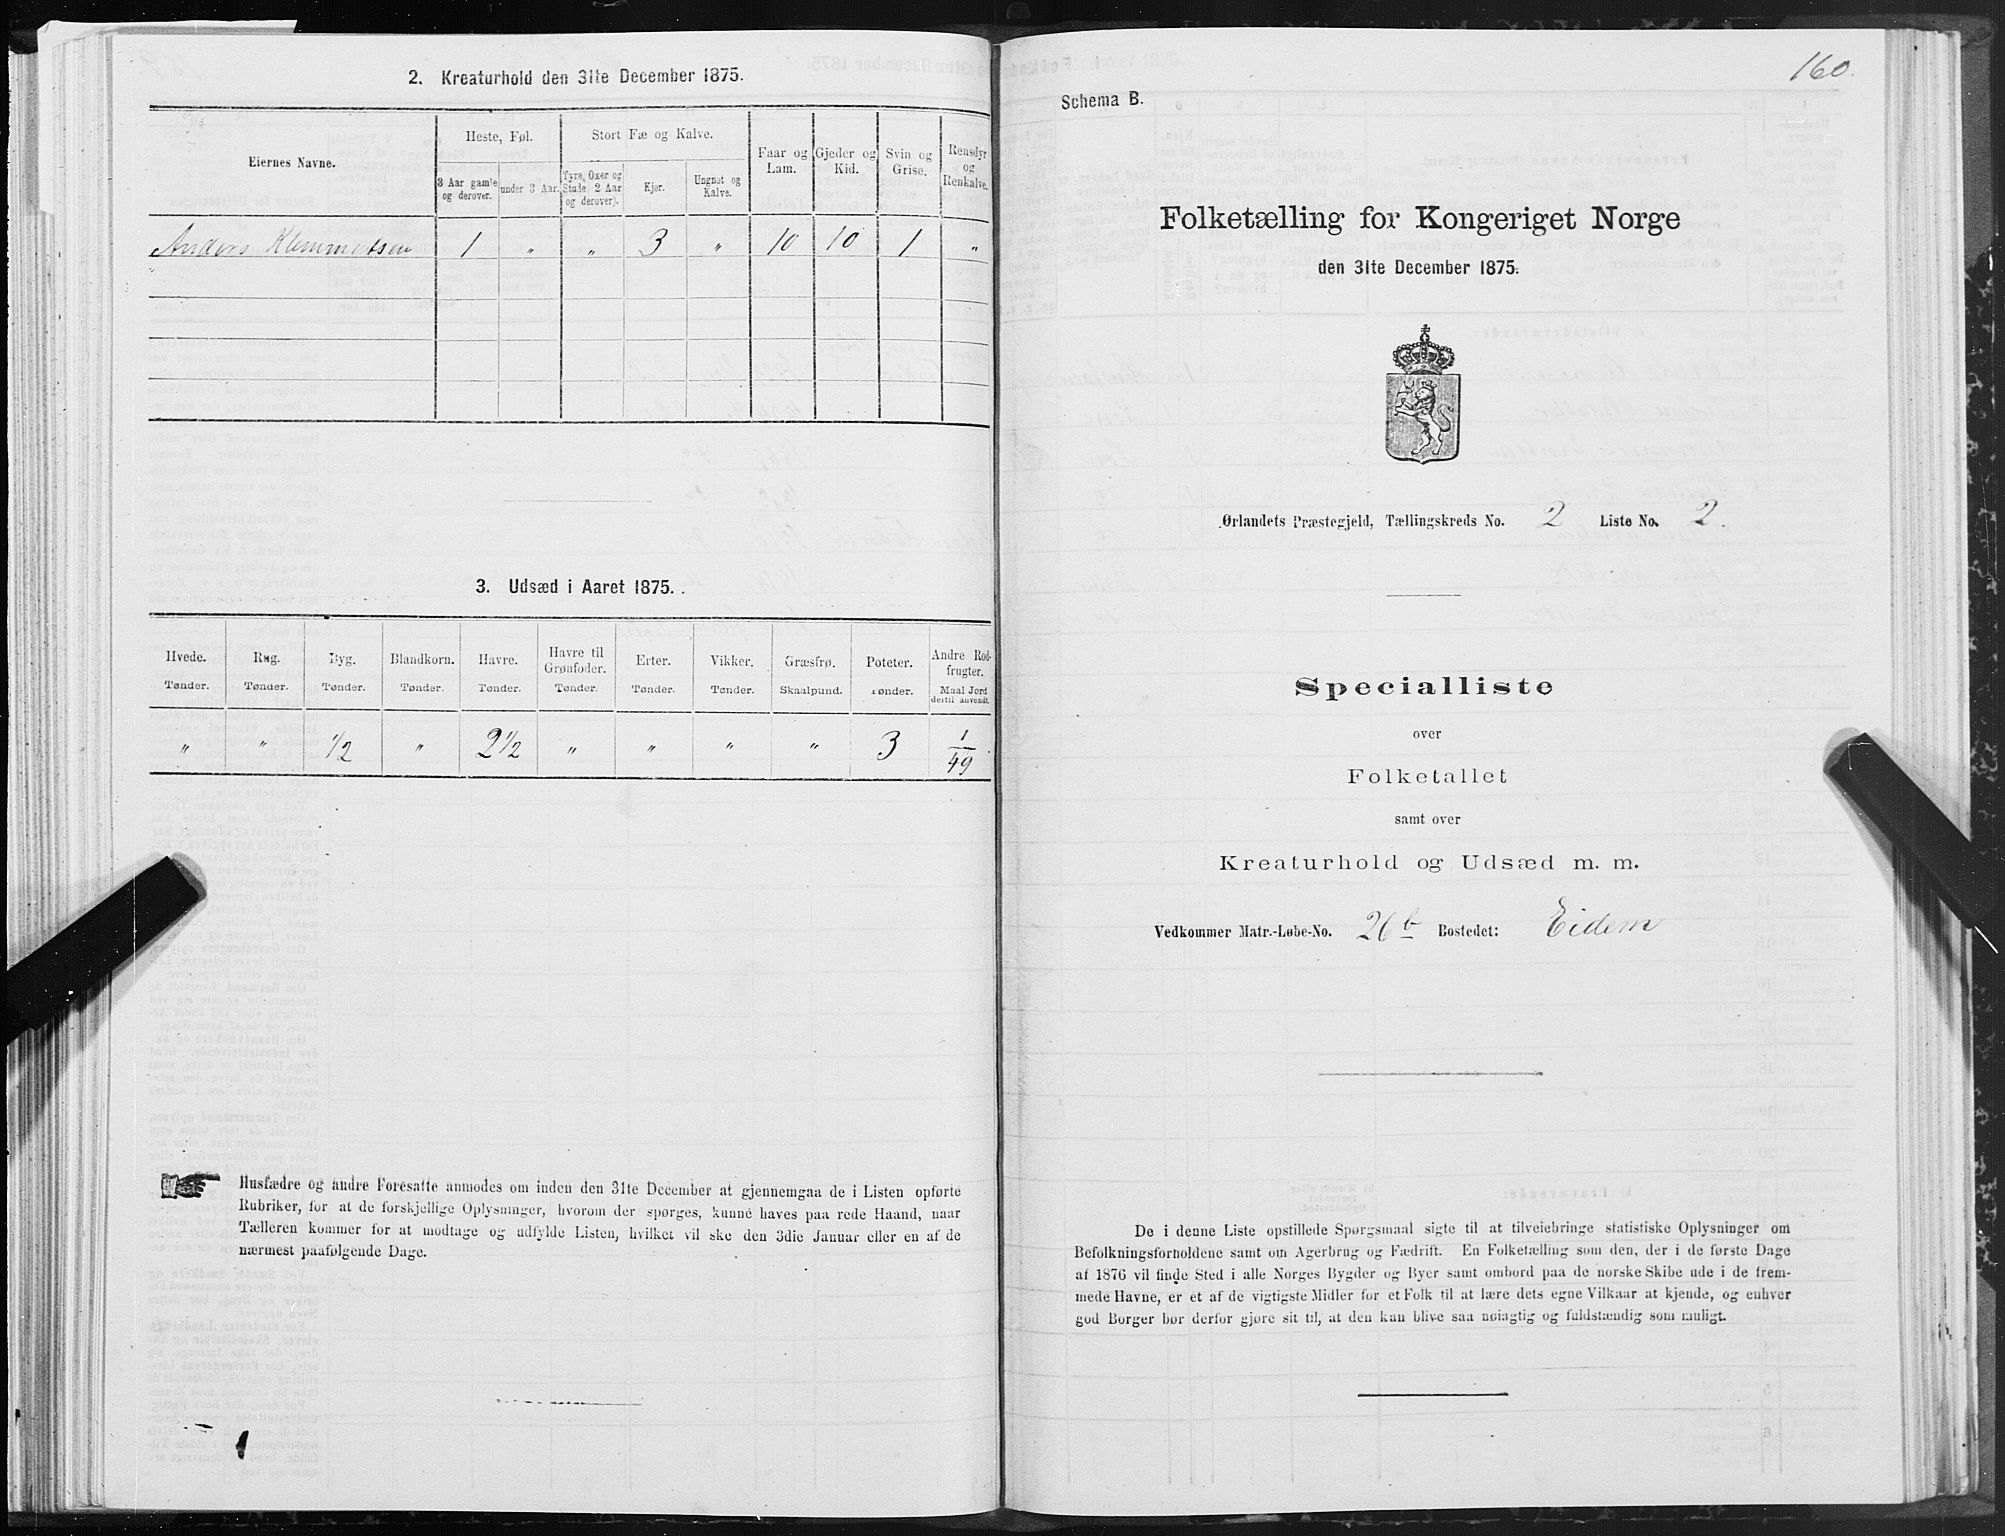 2. Kreaturhold den 31te December 1875.
Eiernes Navne.
Heste, Føl.
3 Aar gamle og derover.
under 3 Aar.
Stort Fæ og Kalve.
Tyre, Oxer og Stude 2 Aar og derover).
Kjør.
Ungnøt og Kalve.
Faar og Lam.
Gjeder og Kid.
Svin og Grise.
Rensdyr og Renkalve.
Anders Klemmetsen 1 „ „ 3 „ 10 10 1 „
„
3. Udsæd i Aaret 1875.
Hvede. Rug. Byg. Blandkorn. Havre. Havre til Grønfoder. Erter. Vikker. Græsfrø. Poteter. Andre Rodfrugter.
Tønder. Tønder. Tønder. Tønder. Tønder. Tønder. Tønder. Tønder. Skaalpund. Tønder. Maal Jord dertil anvendt.
„ „ 1/2 „ 2 1/2 „ „ „ „ 3 1/49
Husfædre og andre Foresatte anmodes om inden den 31te December at gjennemgaa de i Listen opførte
Rubriker, for at de forskjellige Oplysninger, hvorom der spørges, kunne haves paa rede Haand, naar
Tælleren kommer for at modtage og udfylde Listen, hvilket vil ske den 3die Januar eller en af de
nærmest paafølgende Dage.
160.
Schema B.
Folketælling for Kongeriget Norge
den 31te December 1875.
Ørlandets Præstegjeld, Tællingskreds No. 2 Liste No. 2.
Specialliste
over
Folketallet
samt over
Kreaturhold og Udsæd m. m.
Vedkommer Matr.-Løbe-No. 26b Bostedet: Eidem
De i denne Liste opstillede Spørgsmaal sigte til at tilveiebringe statistiske Oplysninger om
Befolkningsforholdene samt om Agerbrug og Fædrift. En Folketælling som den, der i de første Dage
af 1876 vil finde Sted i alle Norges Bygder og Byer samt ombord paa de norske Skibe ude i de frem-
mede Havne, er et af de vigtigste Midler for et Folk til at lære dets egne Vilkaar at kjende, og enhver
god Borger bør derfor gjøre sit til, at den kan blive saa nøiagtig og fuldstændig som muligt.